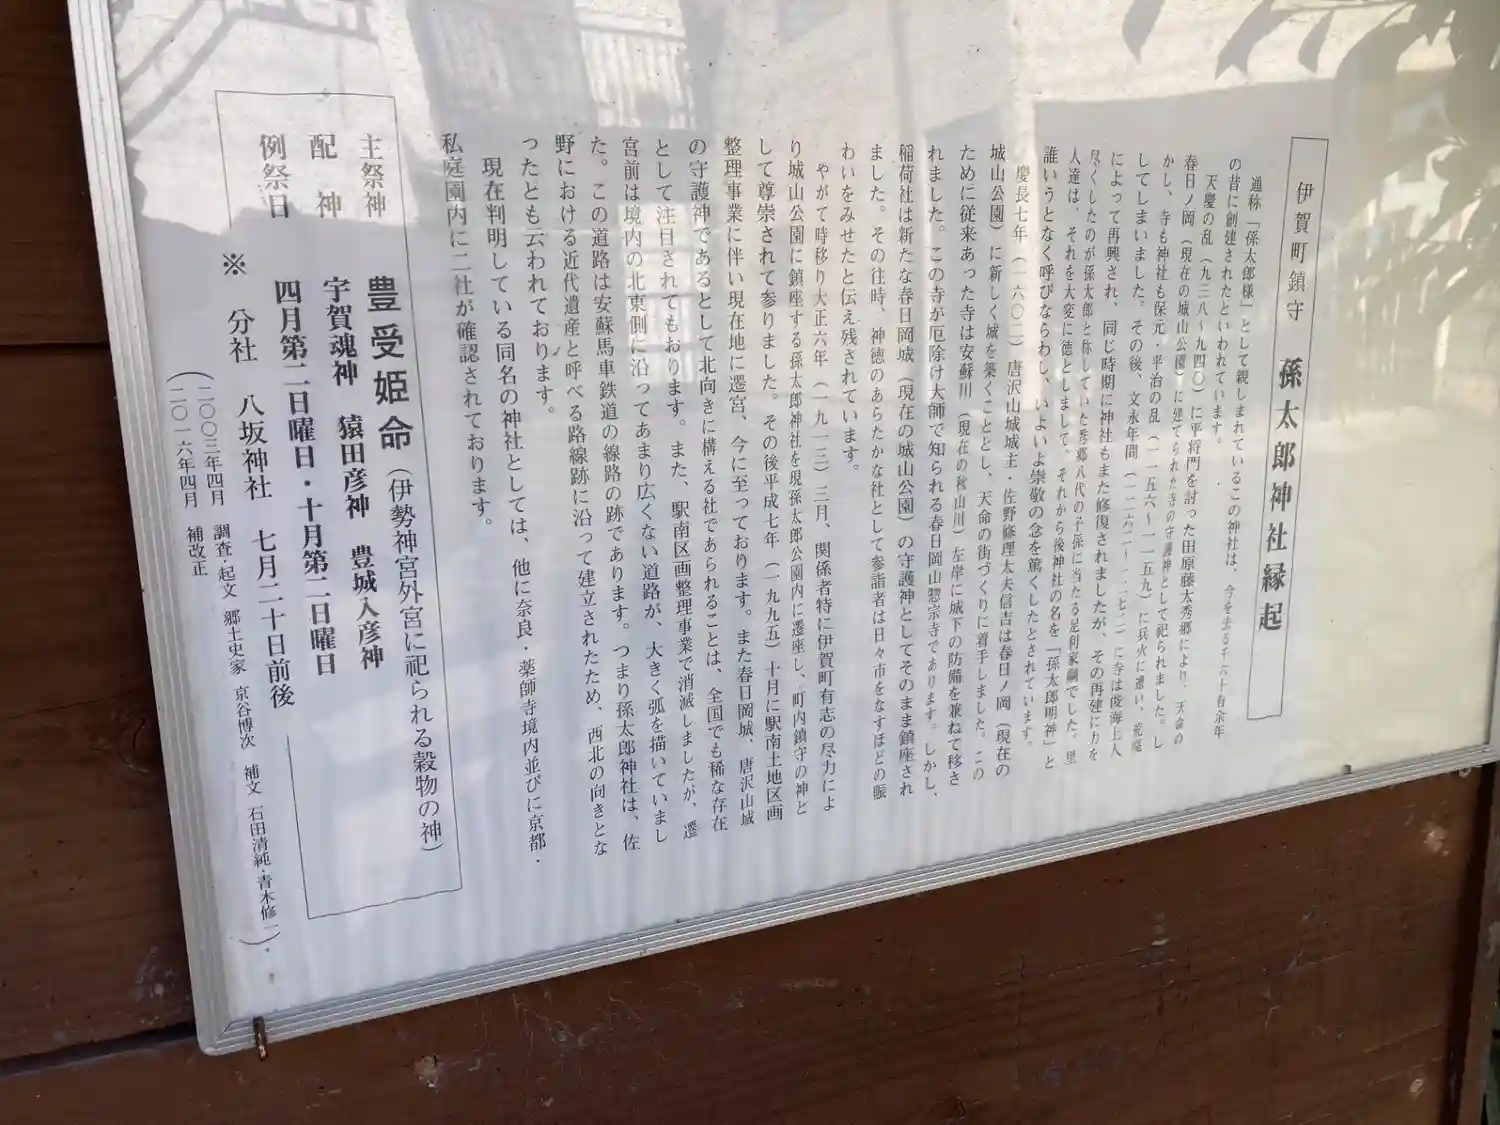 伊賀町鎮守 孫太郎神社縁起
通称「孫太郎様」として親しまれているこの神社は、今を去る千六十有余年
の昔に創建されたといわれています。
天慶の乱(九三八～九四〇)に平将門を討った田原藤太秀郷により、天命の
春日ノ岡(現在の城山公園)に建てられた寺の守護神として祀られました。し
かし、寺も神社も保元・平治の乱(一一五六～一一五九)に兵火に遭い、荒廃
してしまいました。その後、文永年間(一二六二～一二七二)に寺は俊海上人
によって再興され、同じ時期に神社もまた修復されましたが、その再建に力を
尽くしたのが孫太郎と称していた秀郷八代の子孫に当たる足利家綱でした。里
人達は、それを大変に徳としまして、それから後神社の名を「孫太郎明神」と
誰いうとなく呼びならわし、いよいよ崇敬の念を篤くしたとされています。
慶長七年(一六〇二)唐沢山城城主・佐野修理太夫信吉は春日ノ岡(現在の
城山公園)に新しく城を築くこととし、天命の街づくりに着手しました。この
ために従来あった寺は安蘇川(現在の秋山川)左岸に城下の防備を兼ねて移さ
れました。この寺が厄除け大師で知られる春日岡山惣宗寺であります。しかし、
稲荷社は新たな春日岡城(現在の城山公園)の守護神としてそのまま鎮座され
ました。その往時、神徳のあらたかな社として参詣者は日々市をなすほどの賑
わいをみせたと伝え残されています。
やがて時移り大正六年(一九一三)三月、関係者特に伊賀町有志の尽力によ
り城山公園に鎮座する孫太郎神社を現孫太郎公園内に遷座し、町内鎮守の神と
して尊崇されて参りました。その後平成七年(一九九五)十月に駅南土地区画
整理事業に伴い現在地に遷宮、今に至っております。また春日岡城、唐沢山城
の守護神であるとして北向きに構える社であられることは、全国でも稀な存在
として注目されてもおります。また、駅南区画整理事業で消滅しましたが、遷
宮前は境内の北東側に沿ってあまり広くない道路が、大きく弧を描いていまし
た。この道路は安蘇馬車鉄道の線路の跡であります。つまり孫太郎神社は、佐
野における近代遺産と呼べる路線跡に沿って建立されたため、西北の向きとな
ったとも云われております。
現在判明している同名の神社としては、他に奈良・薬師寺境内並びに京都・
私庭園内に二社が確認されております。
主祭神 豊受姫命(伊勢神宮外宮に祀られる穀物の神)
配神 宇賀魂神 猿田彦神 豊城入彦神
例祭日 四月第二日曜日・十月第二日曜日
※ 分社 八坂神社 七月二十日前後
(二〇〇三年四月 調査・起文 郷土史家 京谷博次 補文 石田清純・青木修一)
(二〇一六年四月 補改正